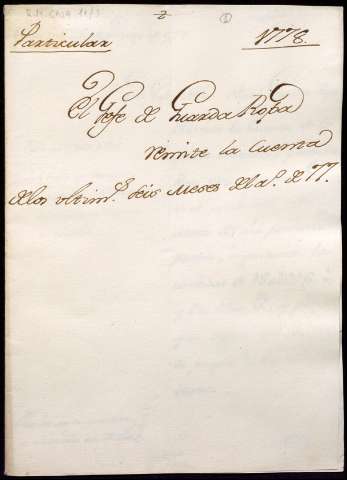 2
Particular 1778.
El Gefe de Guarda Ropa
remite la Cuenta
de los ultim.ˢ seis Meses del a.º de 77.